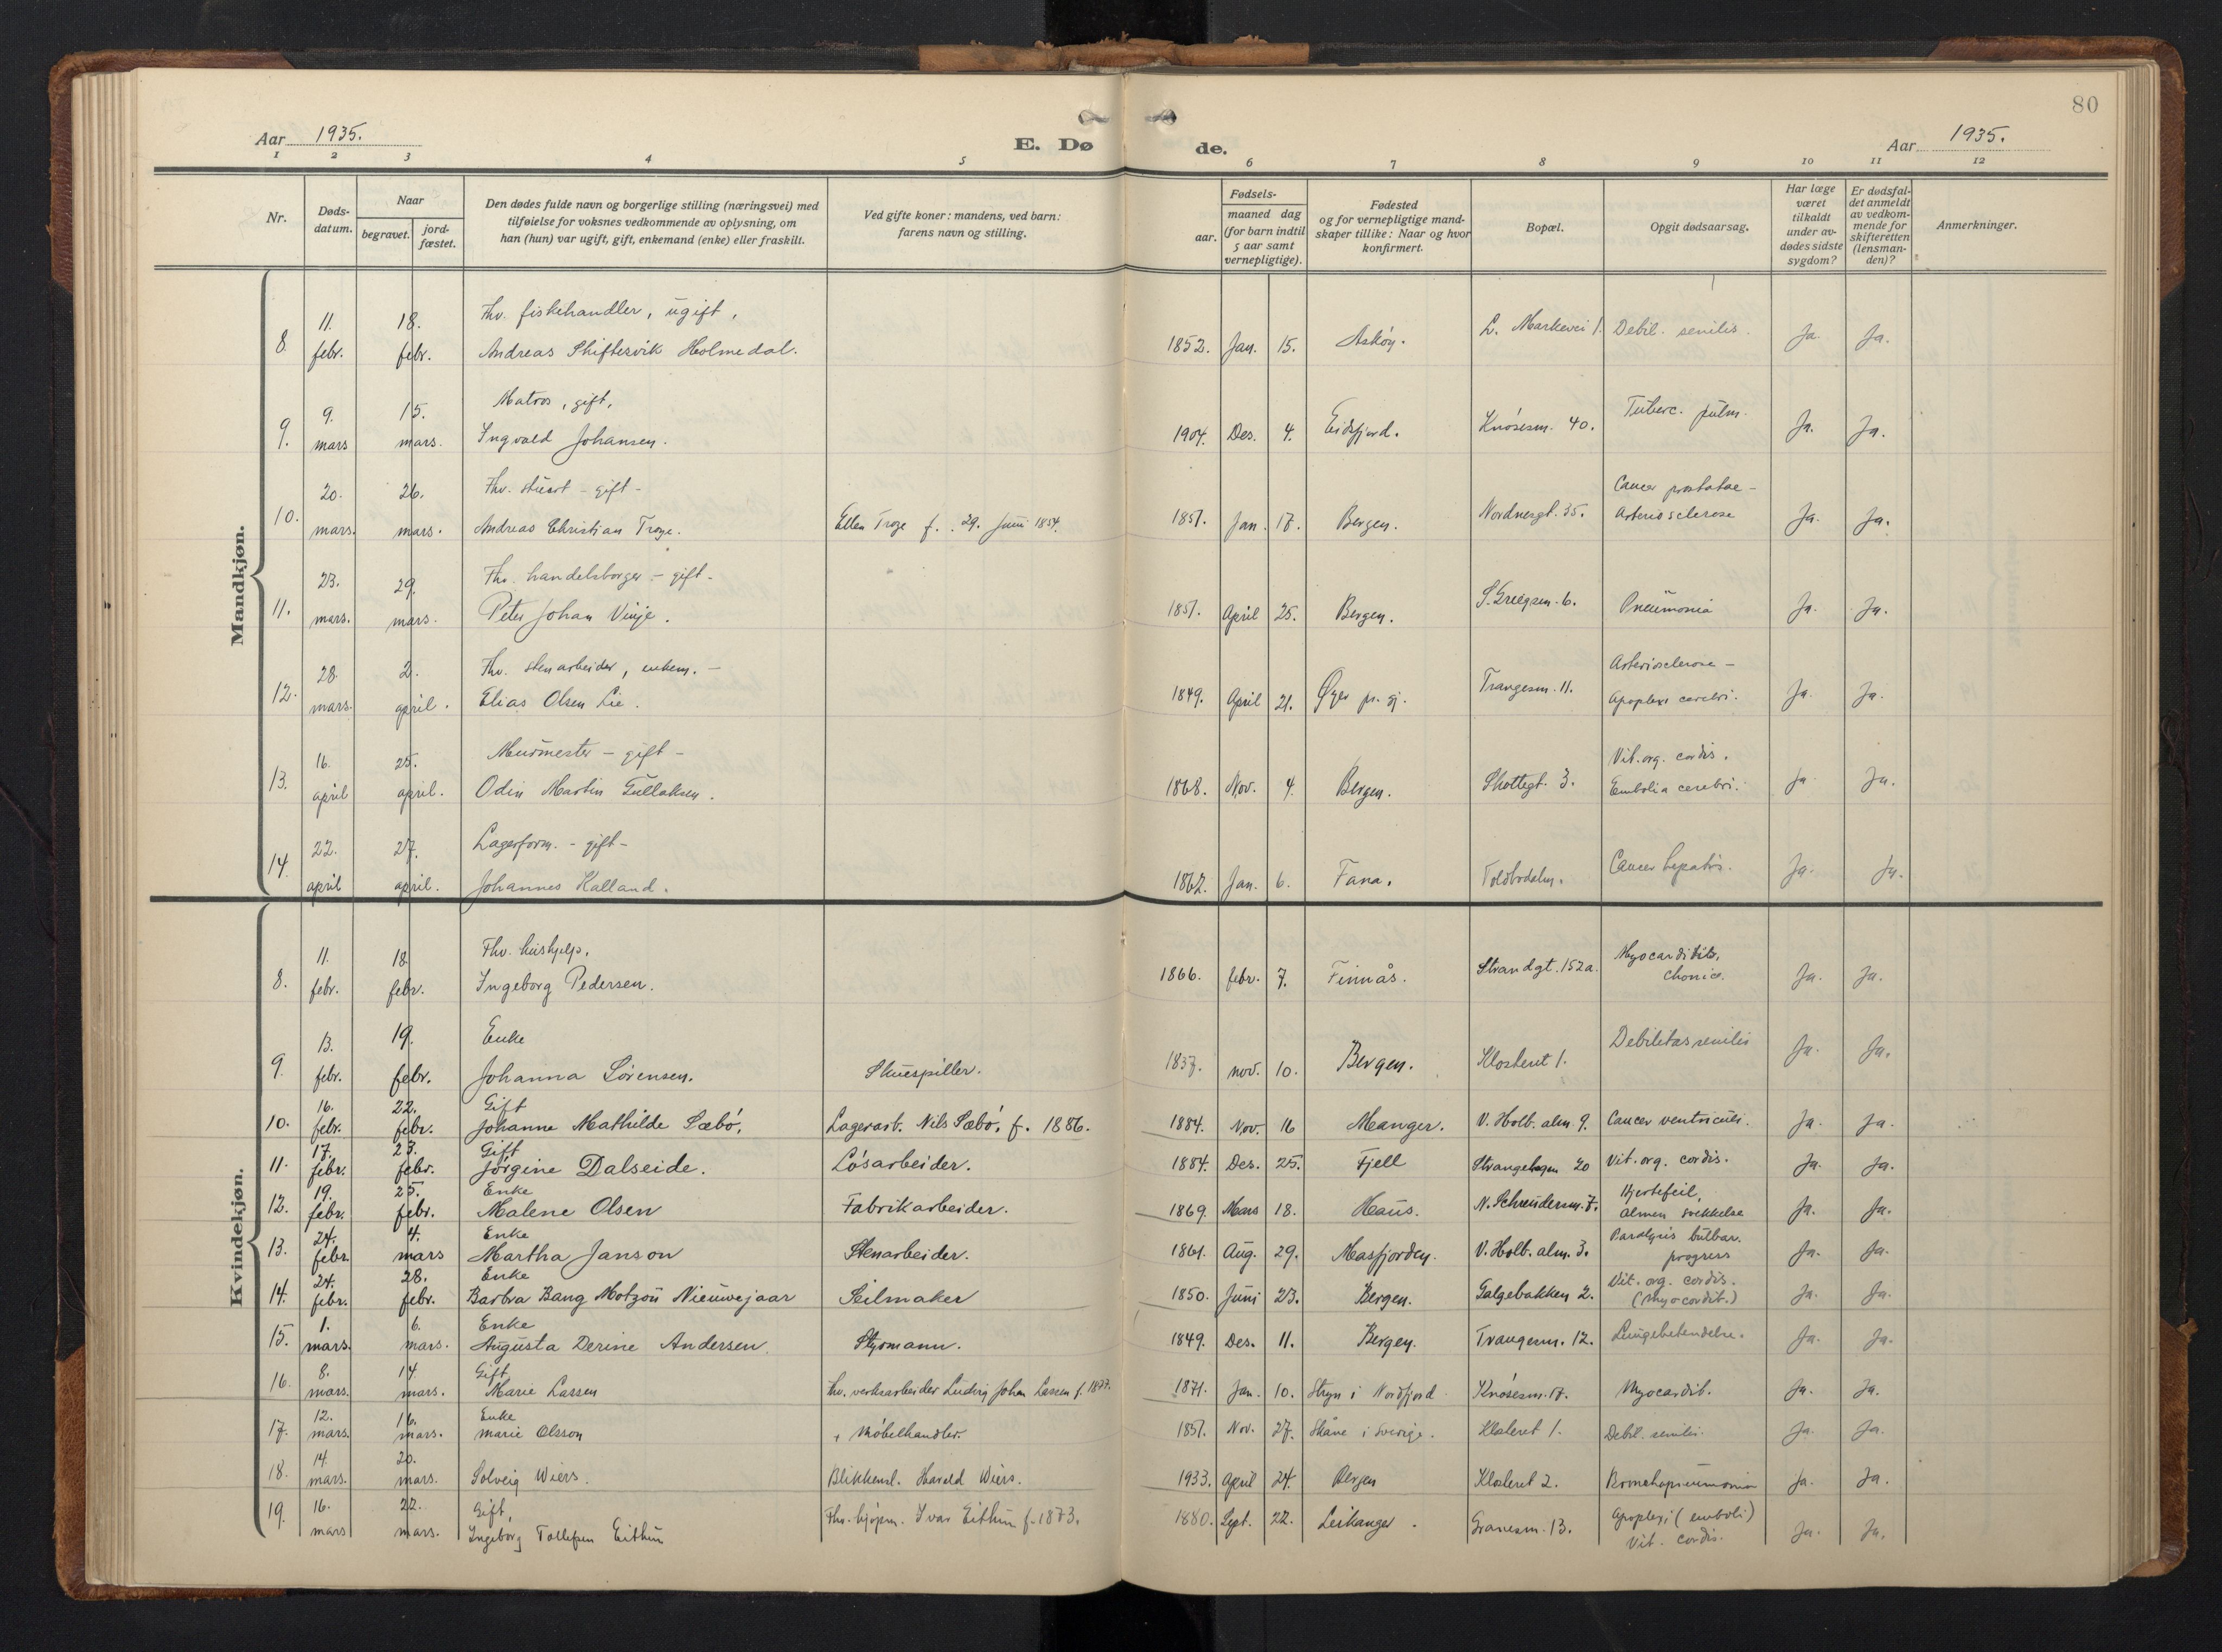 80
Aar 1935.
E. Dø
de.
Aar 1935.
1 2 3 4 5 6 7 8 9 10 11 12
Nr.
Døds-
datum.
Naar
begravet.
jord-
fæstet.
Den dødes fulde navn og borgerlige stilling (næringsvei) med
tilføielse for voksnes vedkommende av oplysning, om
han (hun) var ugift, gift, enkemand (enke) eller fraskilt.
Ved gifte koner: mandens, ved barn:
farens navn og stilling.
Fødsels-
aar.
maaned dag
(for barn indtil
5 aar samt
vernepligtige).
Fødested
og for vernepligtige mand-
skaper tillike: Naar og hvor
konfirmert.
Bopæl.
Opgit dødsaarsag.
Har læge
været
tilkaldt
under av-
dødes sidste
sygdom?
Er dødsfal-
det anmeldt
av vedkom-
mende for
skifteretten
(lensman-
den)?
Anmerkninger.
Mandkjøn.
11. 18. Fhv. fiskehandler, ugift,
8. febr. febr. Andreas Skiftesvik Holmedal. 1852. Jan. 15. Askøy. L. Markevei 1. Debil. senilis. Ja. Ja.
9. 15. Matros, gift,
9. mars mars. Ingvald Johansen. 1904. Des. 4. Eidfjord. Knøsesm. 40. Tuberc. pulm. Ja. Ja.
20. 26. Fhv. stuert - gift - Cancer prostatae -
10. mars. mars. Andreas Christian Troye. Ellen Troye f. 29. Juni 1854. 1851. Jan. 17. Bergen. Nordnesgt. 35. Arteriosclerose Ja. Ja.
23. 29. Fhv. handelsborger - gift -
11. mars. mars. Peter Johan Vinje. 1851. April 25. Bergen. 6. Pneumonia Ja. Ja.
28. 2. Fhv. stenarbeider, enkem. - Arteriosclerose -
12. mars. april. Elias Olsen Lie. 1849. April 21. pr. gj. Trangesm. 11. Apoplexi cerebri. Ja. Ja.
16. 25. Murmester - gift - Vit. org. cordis.
13. april april. Odin Martin Gullaksen. 1868. Nov. 4. Bergen. Skottegt. 3. Embolia cerebri. Ja. Ja.
22. 27. Lagerform. - gift -
14. april april. Johannes Halland. 1862. Jan. 6. Fana. Cancer hepatis. Ja. Ja.
Kvindekjøn.
11. 18 Fhv. hushjelp. Myocarditits,
8. febr. febr. Ingeborg Pedersen. 1866. febr. 7. Finnås. Strandgt. 152a. chonica. Ja. Ja.
13. 19. Enke
9. febr. febr. Johanna Sørensen. Skuespiller. 1837. nov. 10. Bergen. Klosteret 1. Debilitas senilis Ja. Ja.
16. 22. Gift
10. febr. febr. Johanne Mathilde Sæbø. Lagerarb. Nils Sæbø, f. 1886. 1884. Nov. 16 Manger. V. Holb. alm. 9. Cancer ventriculi. Ja. Ja.
17. 23. Gift
11. febr. febr. Jørgine Dalseide. Løsarbeider. 1884. Des. 25. Fjell Strangehagen 20 Vit. org. cordis. Ja. Ja.
19. 25. Enke Hjertefeil,
12. febr. febr. Malene Olsen Fabrikarbeider. 1869. Mars 18. Haus. N. Schreudersm. 7. almen svekkelse Ja. Ja.
24. 4. Enke Paralysis bulbar.
13. febr. mars Martha Janson Stenarbeider. 1861. Aug. 29. Masfjorden. V. Holb. alm. 3. progress Ja. Ja.
24. 28. Enke Vit. org. cordis.
14. febr. febr. Barbra Bang Motzou Nieuwejaar Seilmaker 1850. Juni 23. Bergen. Galgebakken 2. (Myocardit.) Ja. Ja.
1. 6. Enke
15. mars. mars. Augusta Derine Andersen Styrmann. 1849. Des. 11. Bergen. Trangesm. 12. Lungebetendelse. Ja. Ja.
8. 14. Gift
16. mars. mars. Marie Lassen Fhv. verksarbeider Ludvig Johan Lassen f. 1877. 1871. Jan. 10. Stryn i Nordfjord Knøsesm. 17. Myocardit. Ja. Ja.
12. 16. Enke
17. mars. mars. Marie Olsson Møbelhandler. 1851. Nov. 27. Skåne i Sverige. Klosteret 1. Debil. senilis. Ja. Ja.
14 20.
18. mars. mars. Solveig Wiers. Blikkensl. Harald Wiers. 1933. April 24. Bergen Klosteret 2. Bronchopneumonia Ja. Ja.
16. 22. Gift, Apoplexi (emboli)
19. mars mars. Ingeborg Tollefsen Eithun Fhv. kjøpm. Ivar Eithun f. 1873. 1880. Sept. 22. Leikanger. Granesm. 13. Vit. cordis. Ja. Ja.